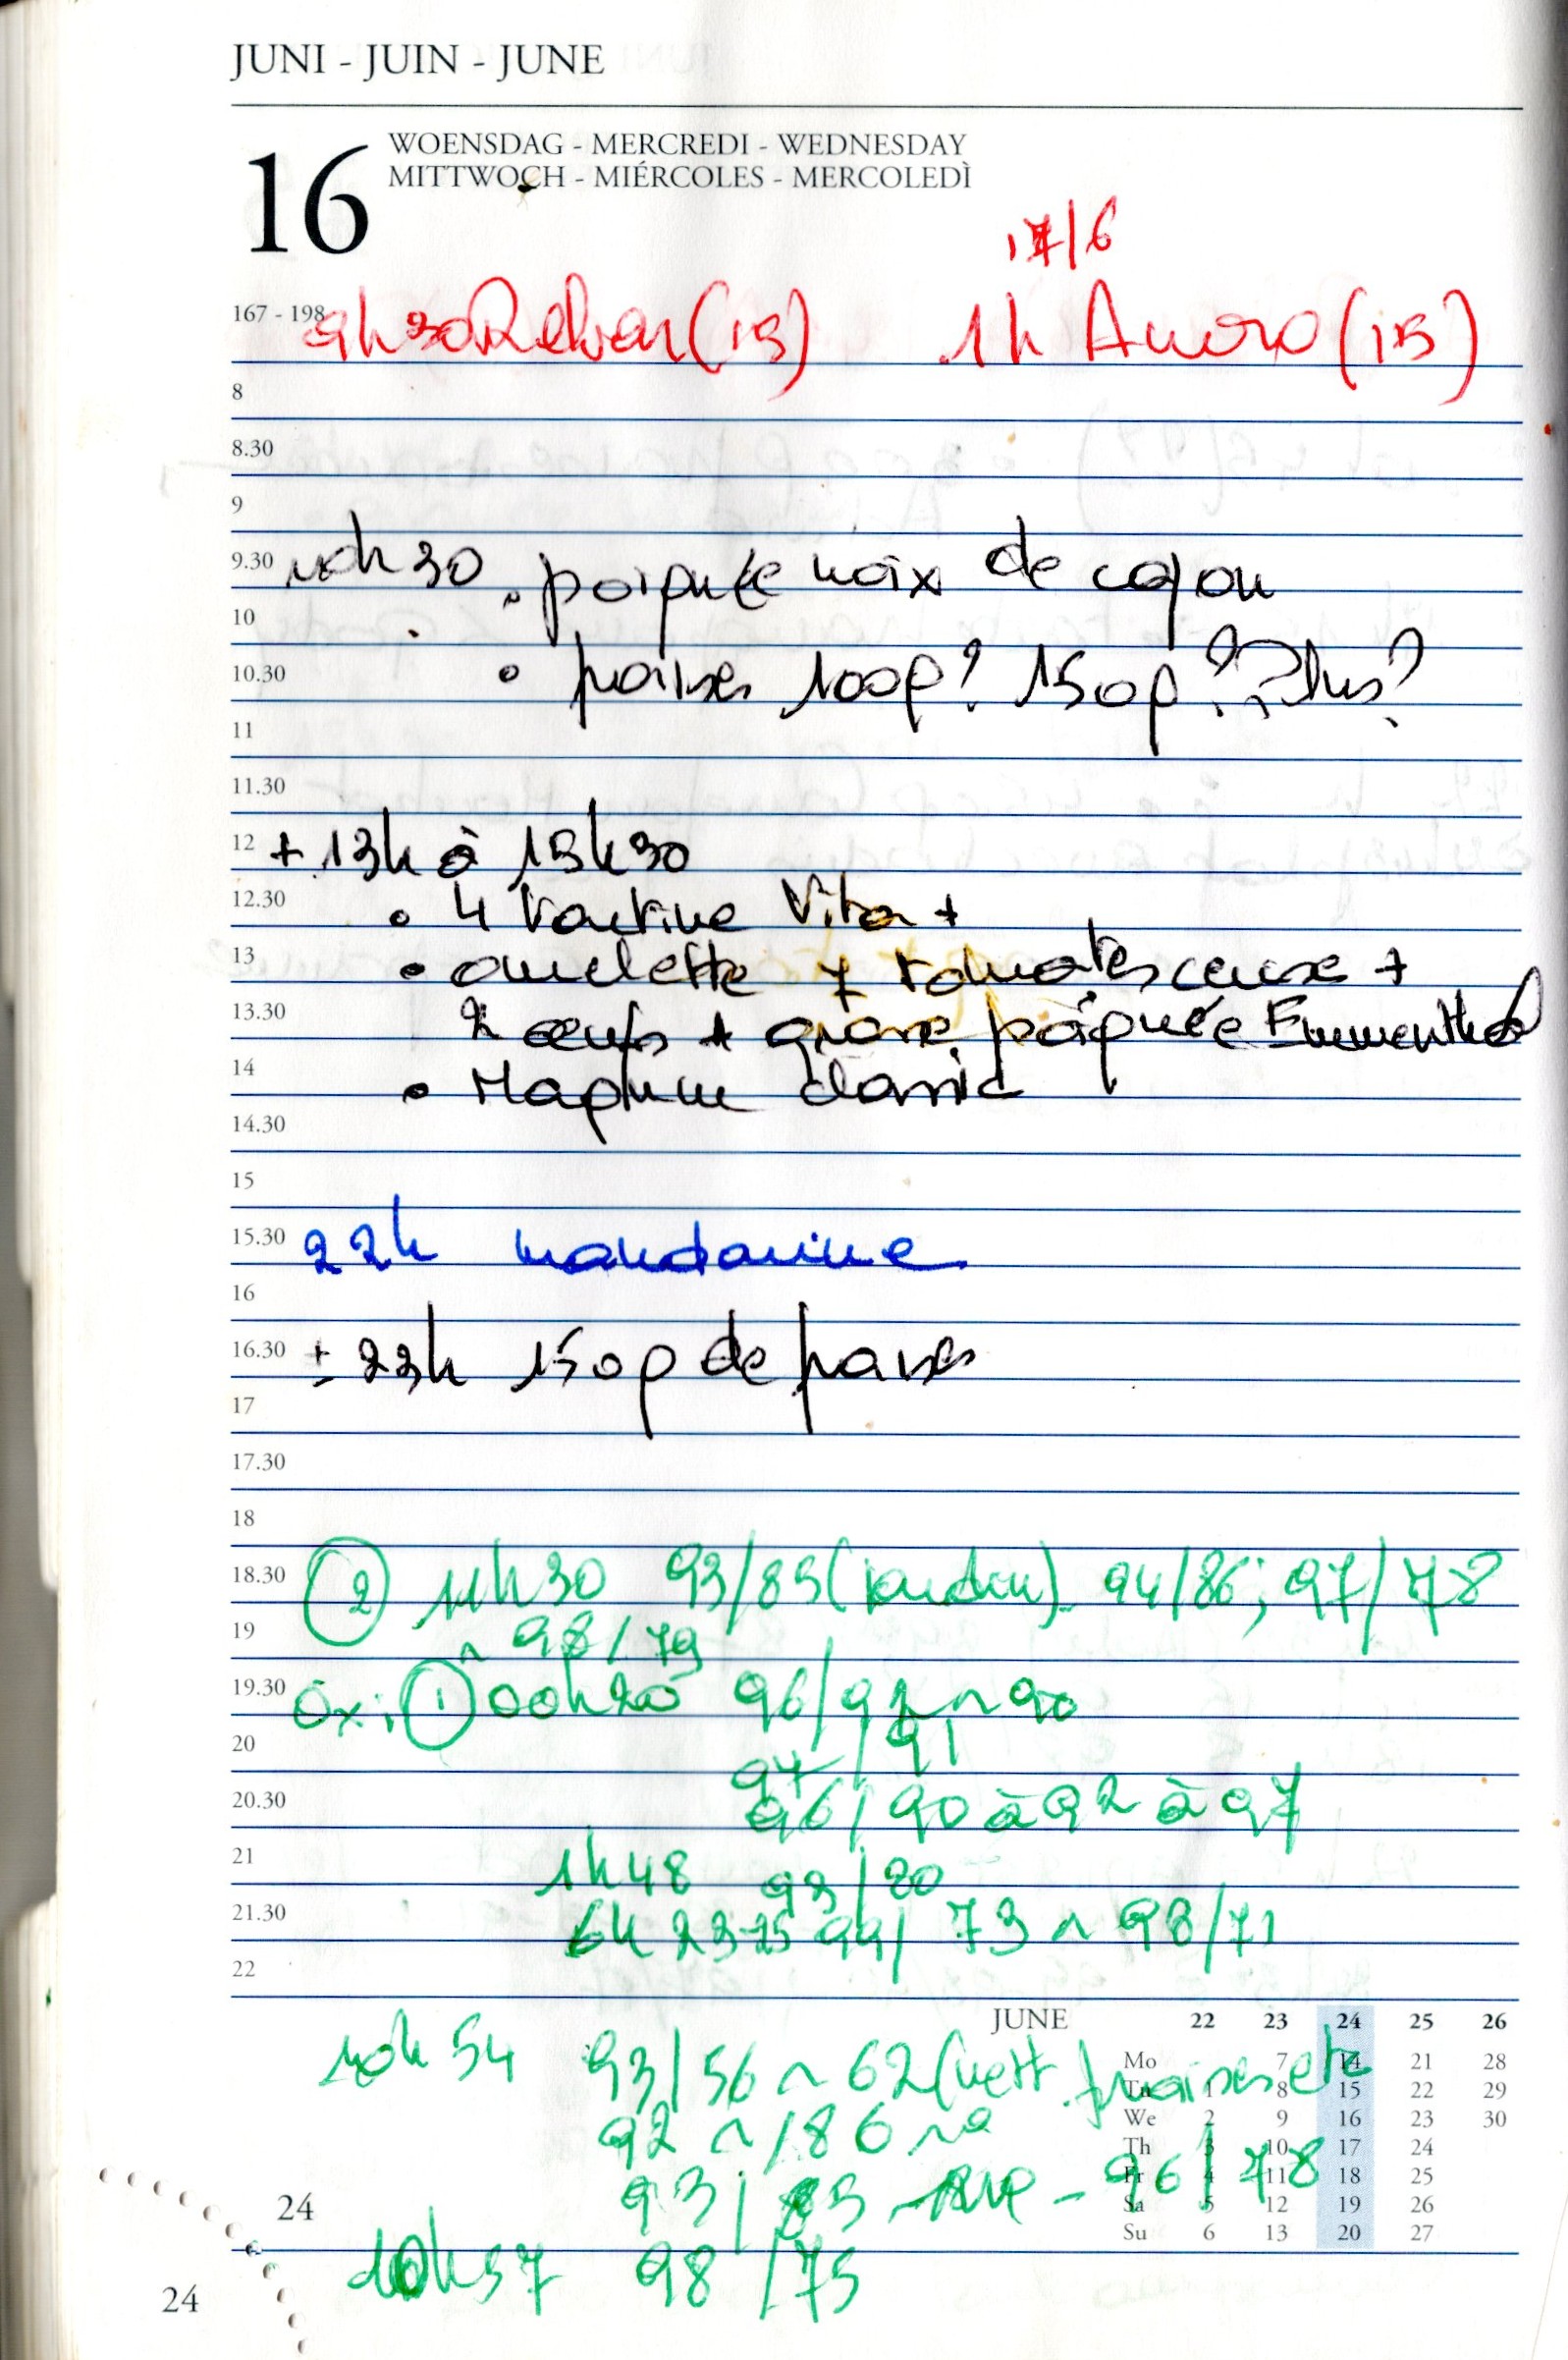 JUNI - JUIN - JUNE
16
WOENSDAG - MERCREDI - WEDNESDAY
MITTWOCH - MIÉRCOLES - MERCOLEDÌ
17/6
167 - 198
9h30 (15) 1h (15)
8
8.30
9
9.30 10h30 . poignée noix de cajou
10
10.30 • fraises 100g? 150g? Plus?
11
11.30
12 + 13h à 15h30
12.30 • 4 tartine Vita +
13 • omelette 7 tomates cerise +
13.30 2 oeufs + grosse poignée Emmenthal
14 • Magnum classic
14.30
15
15.30 22h mandarine
16
16.30 ± 23h 150g de fraises
17
17.30
18
18.30 2 11h30 93/85 94/86; 97/78
19 ~ 98/79
19.30 Ox: 1 00h20 96/92 ~ 90
20 97/91
20.30 96/90 à 92 à 97
21 1h48 93/80
21.30 6h 23-25 94/73 ~ 98/71
22
JUNE 22 23 24 25 26
Mo 7 14 21 28
Tu 1 8 15 22 29
We 2 9 16 23 30
Th 3 10 17 24
Fr 4 11 18 25
Sa 5 12 19 26
Su 6 13 20 27
10h54 93/56 ~ 62 fraises etc
92 ~ /86
93/85 - 96/78
24
10h57 98/75
24